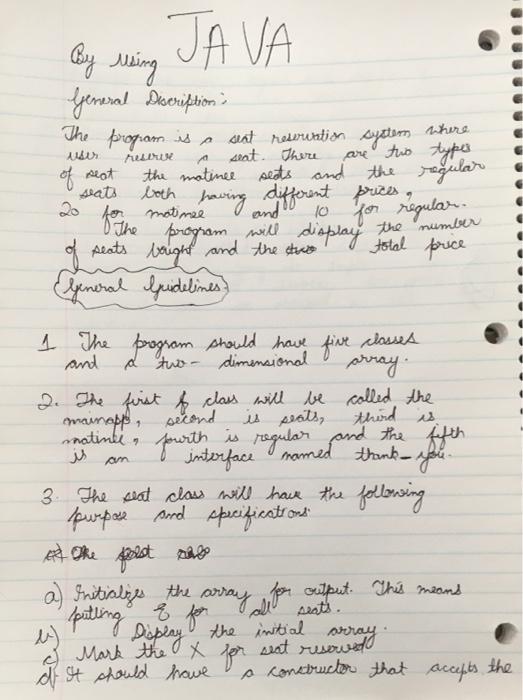 By using JAVA
General Discription:
The program is a seat reservation system where
user reserve a seat. There are two types
of seat the matinee seats and the regular
seats both having different prices,
20 for matinee and 10 for regular.
The program will display the number
of seats bought and the total price
General Guidelines
1 The program should have five classes
and a two-dimensional array.
2. The first class will be called the
mainapp, second is seats, third is
matinee, fourth is regular and the fifth
is an interface named thank-you.
3. The seat class will have the following
purpose and specifications
The
a) Initializes the array for output. This means
putting for all seats.
b) Display the initial array.
c) Mark the X for seat reserved
d) It should have a constructor that accepts the